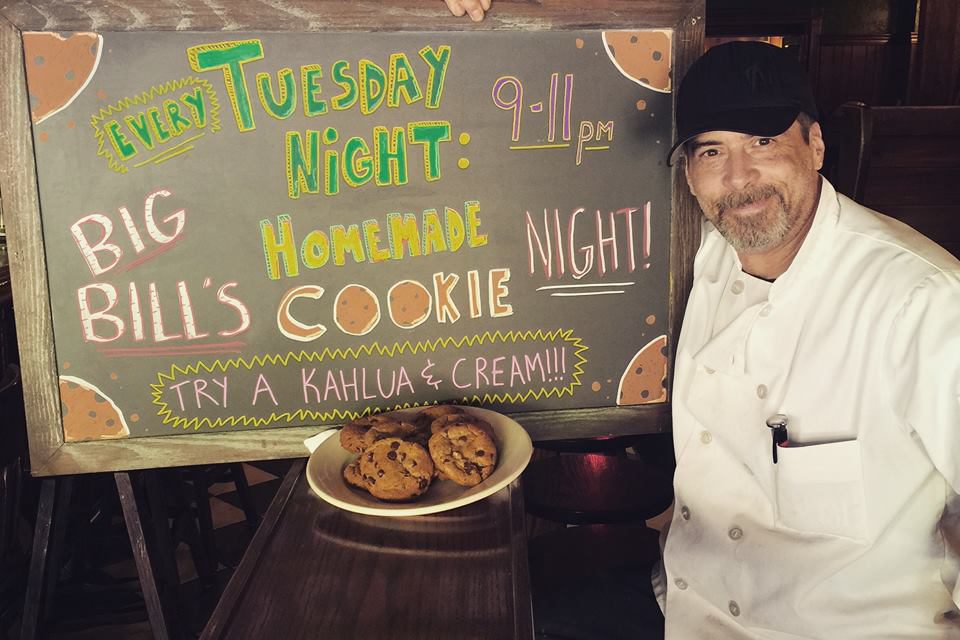 EVERY TUESDAY NiGHT: 9-11 pm
BIG BILL'S HOMEMADE COOKIE NIGHT!
TRY A KAHLUA & CREAM!!!